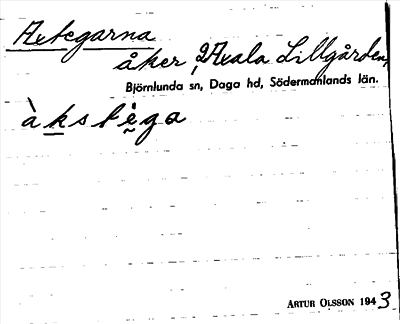 Axtegarna
åker, Axala Lillgården,
Björnlunda sn, Daga hd, Södermanlands län.
àkstèga
ARTUR OLSSON 1943